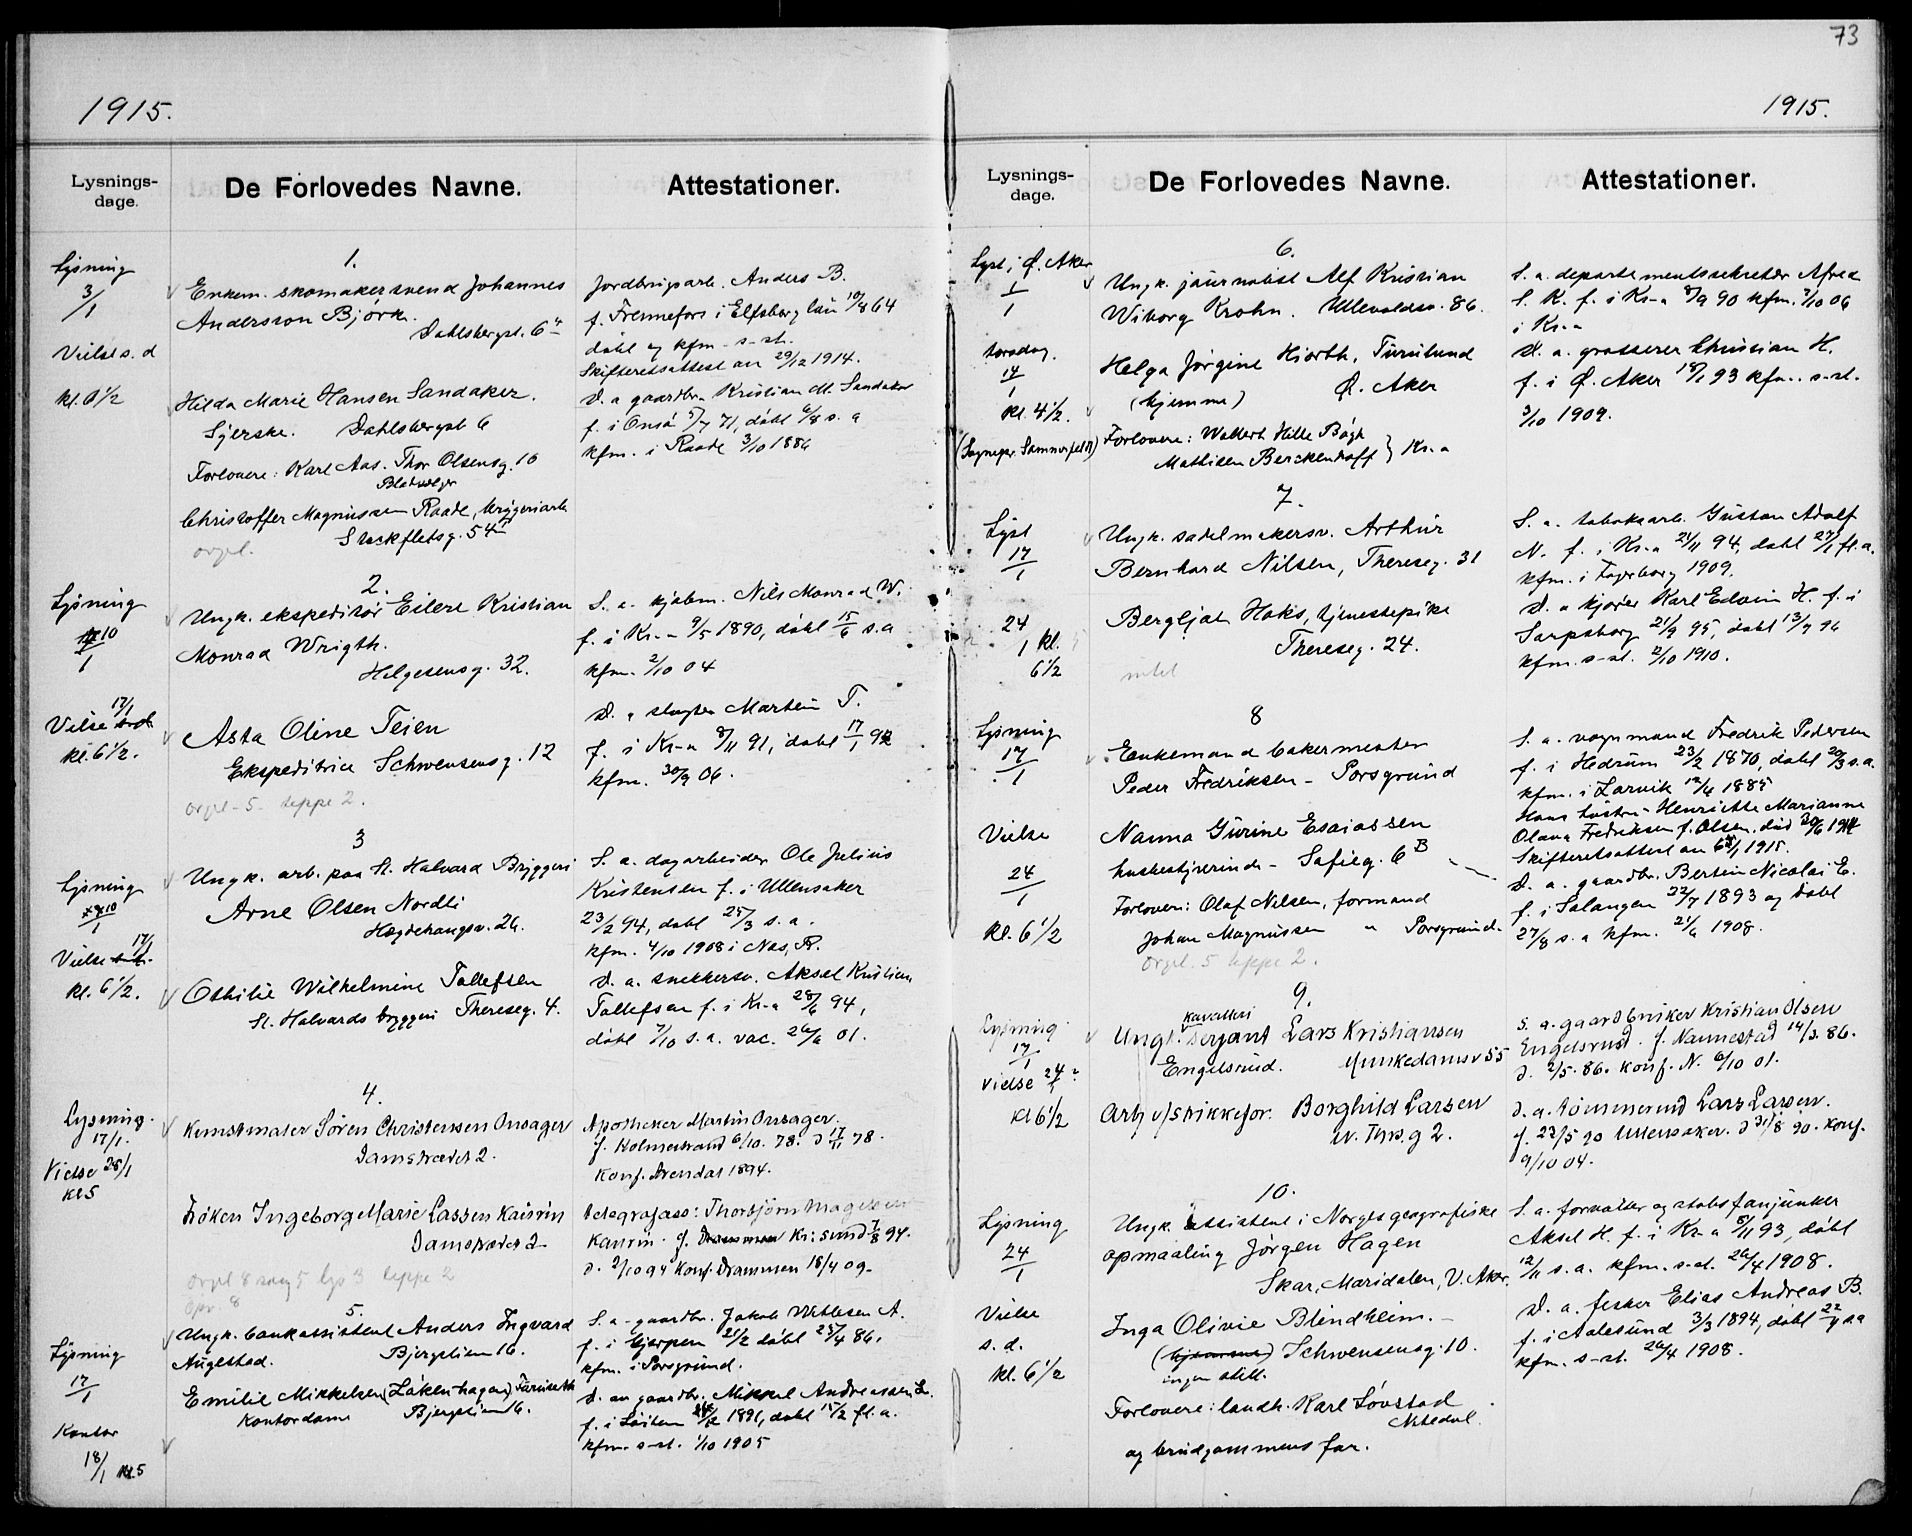 73
1915.
1915.
Lysnings-
dage.
De Forlovedes Navne.
Attestationer.
Lysning
3/1
Vielse s. d
kl. 6 1/2
1.
Enkem. skomakersvend Johannes
Andersson Björk.
Dahlsbergst. 6
Hilda Marie Hansen Sandaker.
Syerske. Dahlsbergst 6
Forlovere: Karl Aas. Thor Olsensg. 10
Christoffer Magnussen Raade, bryggeriarb
Stockfletsg. 54
orgel.
Jordbrugsarb. Anders B.
f. Frennefors i Elfsborg län 10/8 64
døbt og kfm. s-st.
Skifteretsattest av 29/12 1914.
D. a gaardbr. Kristian M. Sandaker
f. i Onsø 5/7 71, døbt 6/8 s. a
kfm. i Raade 3/10 1886
Lysning
10/1
Vielse 17/1
kl. 6 1/2.
2.
Ungk. ekspeditør Eilert Kristian
Monrad Wrigth.
Helgesensg. 32.
Asta Oline Teien
Ekspeditrice Schwensensg. 12
orgel - 5 - teppe 2.
S. a. kjøbm. Nils Monrad W.
f. i Kr.a 9/5 1890, døbt 15/6 s.a
kfm. 2/10 04
D. a slagter Martin T.
f. i Kr-a 8/11 91, døbt 17/1 92
kfm. 30/9 06.
Lysning
10/1
Vielse 17/1
kl. 6 1/2.
3
Ungk. arb. paa St. Halvard Bryggeri
Arne Olsen Nordli
Hægdehaugsv. 26.
Othilie Wilhelmine Tollefsen
St. Halvards bryggeri Thereseg. 4.
S. a. dagarbeider Ole Julius
Kristensen f. i Ullensaker
23/2 94, døbt 25/3 s. a.
kfm. 4/10 1908 i Nas, R.
D. a. snekkersv. Aksel Kristian
Tollefsen f. i Kr.a 28/6 94,
døbt 7/10 s. a. vac. 26/6 01.
Lysning.
17/1.
Vielse 28/1
kl 5
4.
Kunstmaler Sören Christensen Onsager
Damstrædet 2.
Fröken Ingeborg Marie Lassen Kaurin
Damstrædet 2
Apotheker Martin Onsager.
f. Holmestrand 6/10. 78. d 17/11 78.
Konf. Arendal 1894.
Telegrafass: Thorbjörn Magelssen
Kaurin. f. Kr:sund 7/8 94.
d. 2/10 94 Konf. Drammen 18/4 09.
Lysning
17/1
Kontor
18/1 kl. 5
5.
Ungk. bankassistent Anders Ingvard
Augestad. Bjergstien 16.
Emilie Mikkelsen (Løkenhagen)
Kontordame Bjergstien 16.
S. a. gaardbr. Jakob A.
f. i Gjerpen 21/2 døbt 25/4 86.
kfm. i Porsgrund.
D. av gaardbr. Mikkel Andreassen L.
f. i Løiten 1891, døbt 15/2 fl. a.
kfm. s-st. 1/10 1905
Lysnings-
dage.
De Forlovedes Navne.
Attestationer.
Lyst i Ø. Aker
1/1
torsdag.
14/1
kl. 4 1/2.
(Sognepr. Sommerfeldt)
6.
Ungk. journalist Alf Kristian
Wiborg Krohn. Ullevoldsv. 86.
Helga Jørgine Hiorth,
(hjemme) Ø. Aker
Forlovere: Waldert Hille Bøgh
Mathisen Berckenhoff } Kr.a
S. a. departementssekretær Alfred
S. K. f. i Kr-a 8/9 90 kfm. 7/10 06
i Kr.a
D. a. grosserer Christian H.
f. i Ø. Aker 18/1 93 kfm. s-st.
3/10 1909.
Lyst
17/1
24/1 kl.
6 1/2
7.
Ungk. sadelmakersv. Arthur
Bernhard Nilsen, Thereseg. 31
Bergljot Hoks, tjenestepike
Thereseg. 24.
intet
S. a. tobaksarb. Gustav Adolf
N. f. i Kr.a 21/11 94, døbt 27/1 fl. a.
kfm. i Fagerborg 1909.
D. a kjører Karl Edvin H. f. i
Sarpsborg 21/9 95, døbt 13/9 96
kfm. s-st. 2/10 1910.
Lysning
17/1
Vielse
24/1
kl. 6 1/2
8
Enkemand bakermester
Peder Fredriksen - Porsgrund
Nanna Gurine Esaiassen
husbestyrerinde - Sofieg. 6 B
Forlovere: Olaf Nilsen, formand
Johan Magnussen " Porsgrund.
Orgel. 5 teppe 2.
S. a. vognmand Fredrik Pedersen
f. i Hedrum 23/2 1870, døbt 20/3 s.a.
kfm. i Larvik 12/4 1885
Hans hustru Henriette Marianne
Olava Fredriksen f. Olsen, død 30/6 1914
Skifteretsattest av 1915.
D. a. gaardbr. Bertin Nicolai E.
f. i Salangen 22/7 1893 og døbt
27/8 s. a kfm. 21/6 1908.
Lysning.
17/1
Vielse 24/1 ?
kl 6 1/2
9.
kavalleri
Ungk. serjant Lars Kristiansen
Engelsrud. Munkedamsv 55
Arb v/strikkefor. Borghild Larsen
N. Thrs. g 2.
S. a. gaardbruker Kristian Olsen
Engelsrud. f. Nannestad 14/3. 86.
d. 2/5. 86. konf. N. 6/10 01.
D. a. Tømmermd Lars Larsen.
f. 23/5 90 Ullensaker. d 31/8 90. konf.
9/10 04.
Lysning
24/1
Vielse
s. d.
kl. 6 1/2
10.
Ungk. assistent i Norges geografiske
opmaaling Jørgen Hagen
Skar, Maridalen, V. Aker.
Inga Olivie Blindheim. -
(hjemme) Schwensensg. 10.
ingen still.
Forlovere: landh. Karl Løvstad
Nitedal.
og brudgommens far.
S. a. forvalter og stabsfanjunker
Aksel H. f. i Kr-a 5/11 93, døbt
12/11 s. a. kfm. s-st. 26/4 1908.
D. a. fisker Elias Andreas B.
f. i Aalesund 3/3 1894, døbt 22/4 s a
kfm. s-st. 26/4 1908.